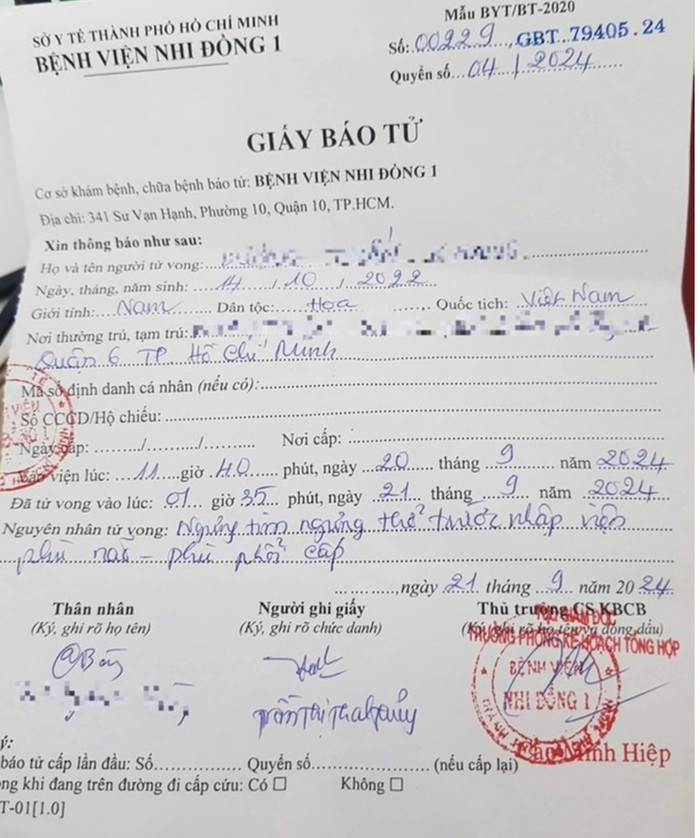 SỞ Y TẾ THÀNH PHỐ HỒ CHÍ MINH
BỆNH VIỆN NHI ĐỒNG 1
Mẫu BYT/BT-2020
Số: 00229, GBT. 79405.24
Quyển số... 04 / 2024
GIẤY BÁO TỬ
Cơ sở khám bệnh, chữa bệnh báo tử: BỆNH VIỆN NHI ĐỒNG 1
Địa chỉ: 341 Sư Vạn Hạnh, Phường 10, Quận 10, TP.HCM.
Xin thông báo như sau:
Họ và tên người tử vong:
Ngày, tháng, năm sinh: 14, 10, 2022
Giới tính: Nam Dân tộc: Hoa Quốc tịch: Việt Nam
Nơi thường trú, tạm trú:
Quận 6 TP Hồ Chí Minh
Mã số định danh cá nhân (nếu có):
Số CCCD/Hộ chiếu:
Ngày cấp: ....../....../...... Nơi cấp:
viện lúc: 11 giờ 40 phút, ngày 20 tháng 9 năm 2024
Đã tử vong vào lúc: 01 giờ 35 phút, ngày 21 tháng 9 năm 2024
Nguyên nhân tử vong: Ngưng tim ngưng thở trước nhập viện
phù não - phù phổi cấp
......, ngày 21 tháng 9 năm 2024
Thân nhân Người ghi giấy Thủ trưởng CS KBCB
(Ký, ghi rõ họ tên) (Ký, ghi rõ chức danh) (Ký, ghi rõ họ tên và đóng dấu)
TRƯỞNG PHÒNG KẾ HOẠCH TỔNG HỢP
BỆNH VIỆN
NHI ĐỒNG 1
Trần Thị Thanh Thủy
Hiệp
ý:
báo tử cấp lần đầu: Số Quyển số (nếu cấp lại)
ng khi đang trên đường đi cấp cứu: Có ☐ Không ☐
T-01[1.0]